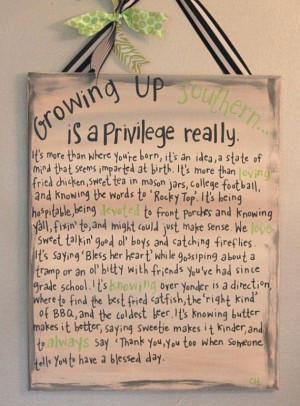 Growing Up Southern...
is a Privilege really.
It's more than where you're born, it's an idea, a state of
mind that seems imparted at birth. It's more than loving
fried chicken, sweet tea in mason jars, college football,
and knowing the words to 'Rocky Top'. It's being
hospitable, being devoted to front porches and knowing
y'all, fixin' to, and might could just make sense. We love
sweet talkin' good ol' boys and catching fireflies.
It's saying 'Bless her heart' while gossiping about a
tramp or an ol' bitty with friends you've had since
grade school. It's knowing over yonder is a direction,
where to find the best fried catfish, the 'right kind'
of BBQ, and the coldest beer. It's knowing butter
makes it better, saying sweetie makes it kinder, and
to always say 'Thank you, you too when someone
tells you to have a blessed day.